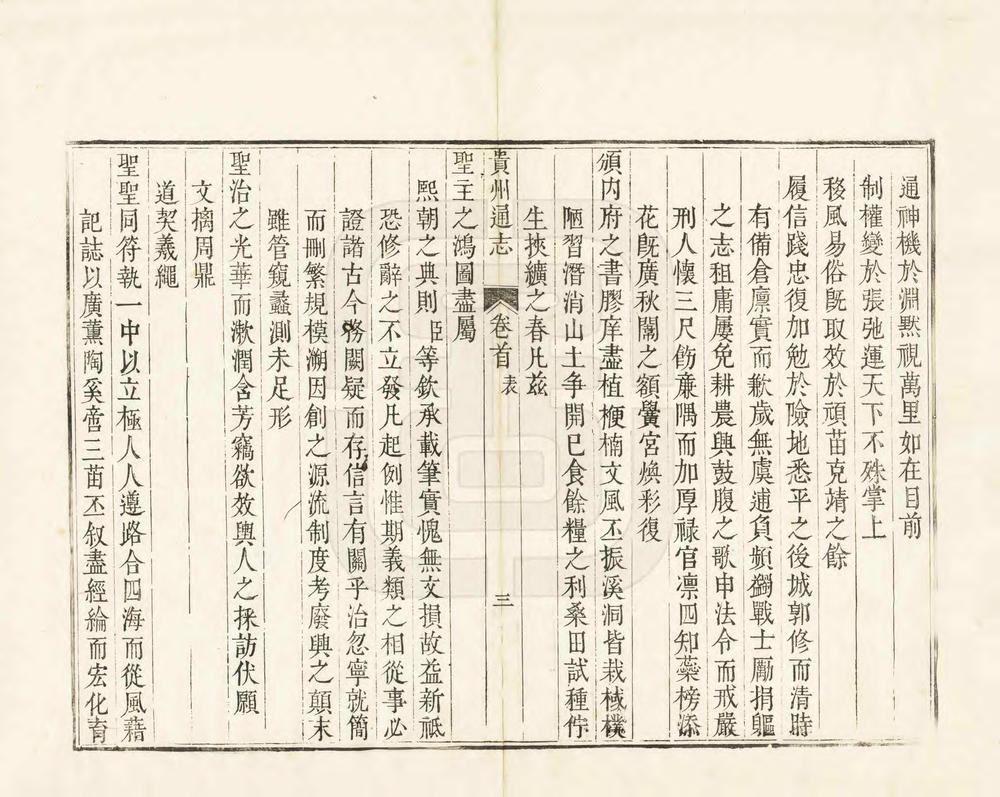 通神機於淵默視萬里如在目前
制權變於張弛運天下不殊掌上
移風易俗旣取效於頑苗克靖之餘
履信踐忠復加勉於險地悉平之後城郭修而清時
有備倉廪實而歉歲無虞逋負頻蠲戰士勵捐軀
之志租庸屢免耕農興鼓腹之歌申法令而戒嚴
刑人懷三尺飭亷隅而加厚禄官凛四知蘂榜添
花旣廣秋闈之額黌宮煥彩復
頒内府之書膠庠盡植楩楠文風丕振溪洞皆栽棫樸
陋習潛消山土争開已食餘糧之利桑田試種佇
生挾纊之春凡兹
貴州通志 卷首 表 三
聖主之鴻圖盡屬
熙朝之典則臣等欽承載筆實愧無文損故益新祇
恐修辭之不立發凡起例惟期義類之相從事必
證諸古今務闕疑而存信言有關乎治忽寧就簡
而刪繁規模溯因創之源流制度考廢興之顛末
雖管窺蠡測未足形
聖治之光華而漱潤含芳竊欲效輿人之採訪伏願
文摛周鼎
道契羲繩
聖聖同符執一中以立極人人遵路合四海而從風藉
記誌以廣薰陶奚啻三苗丕叙盡經綸而宏化育